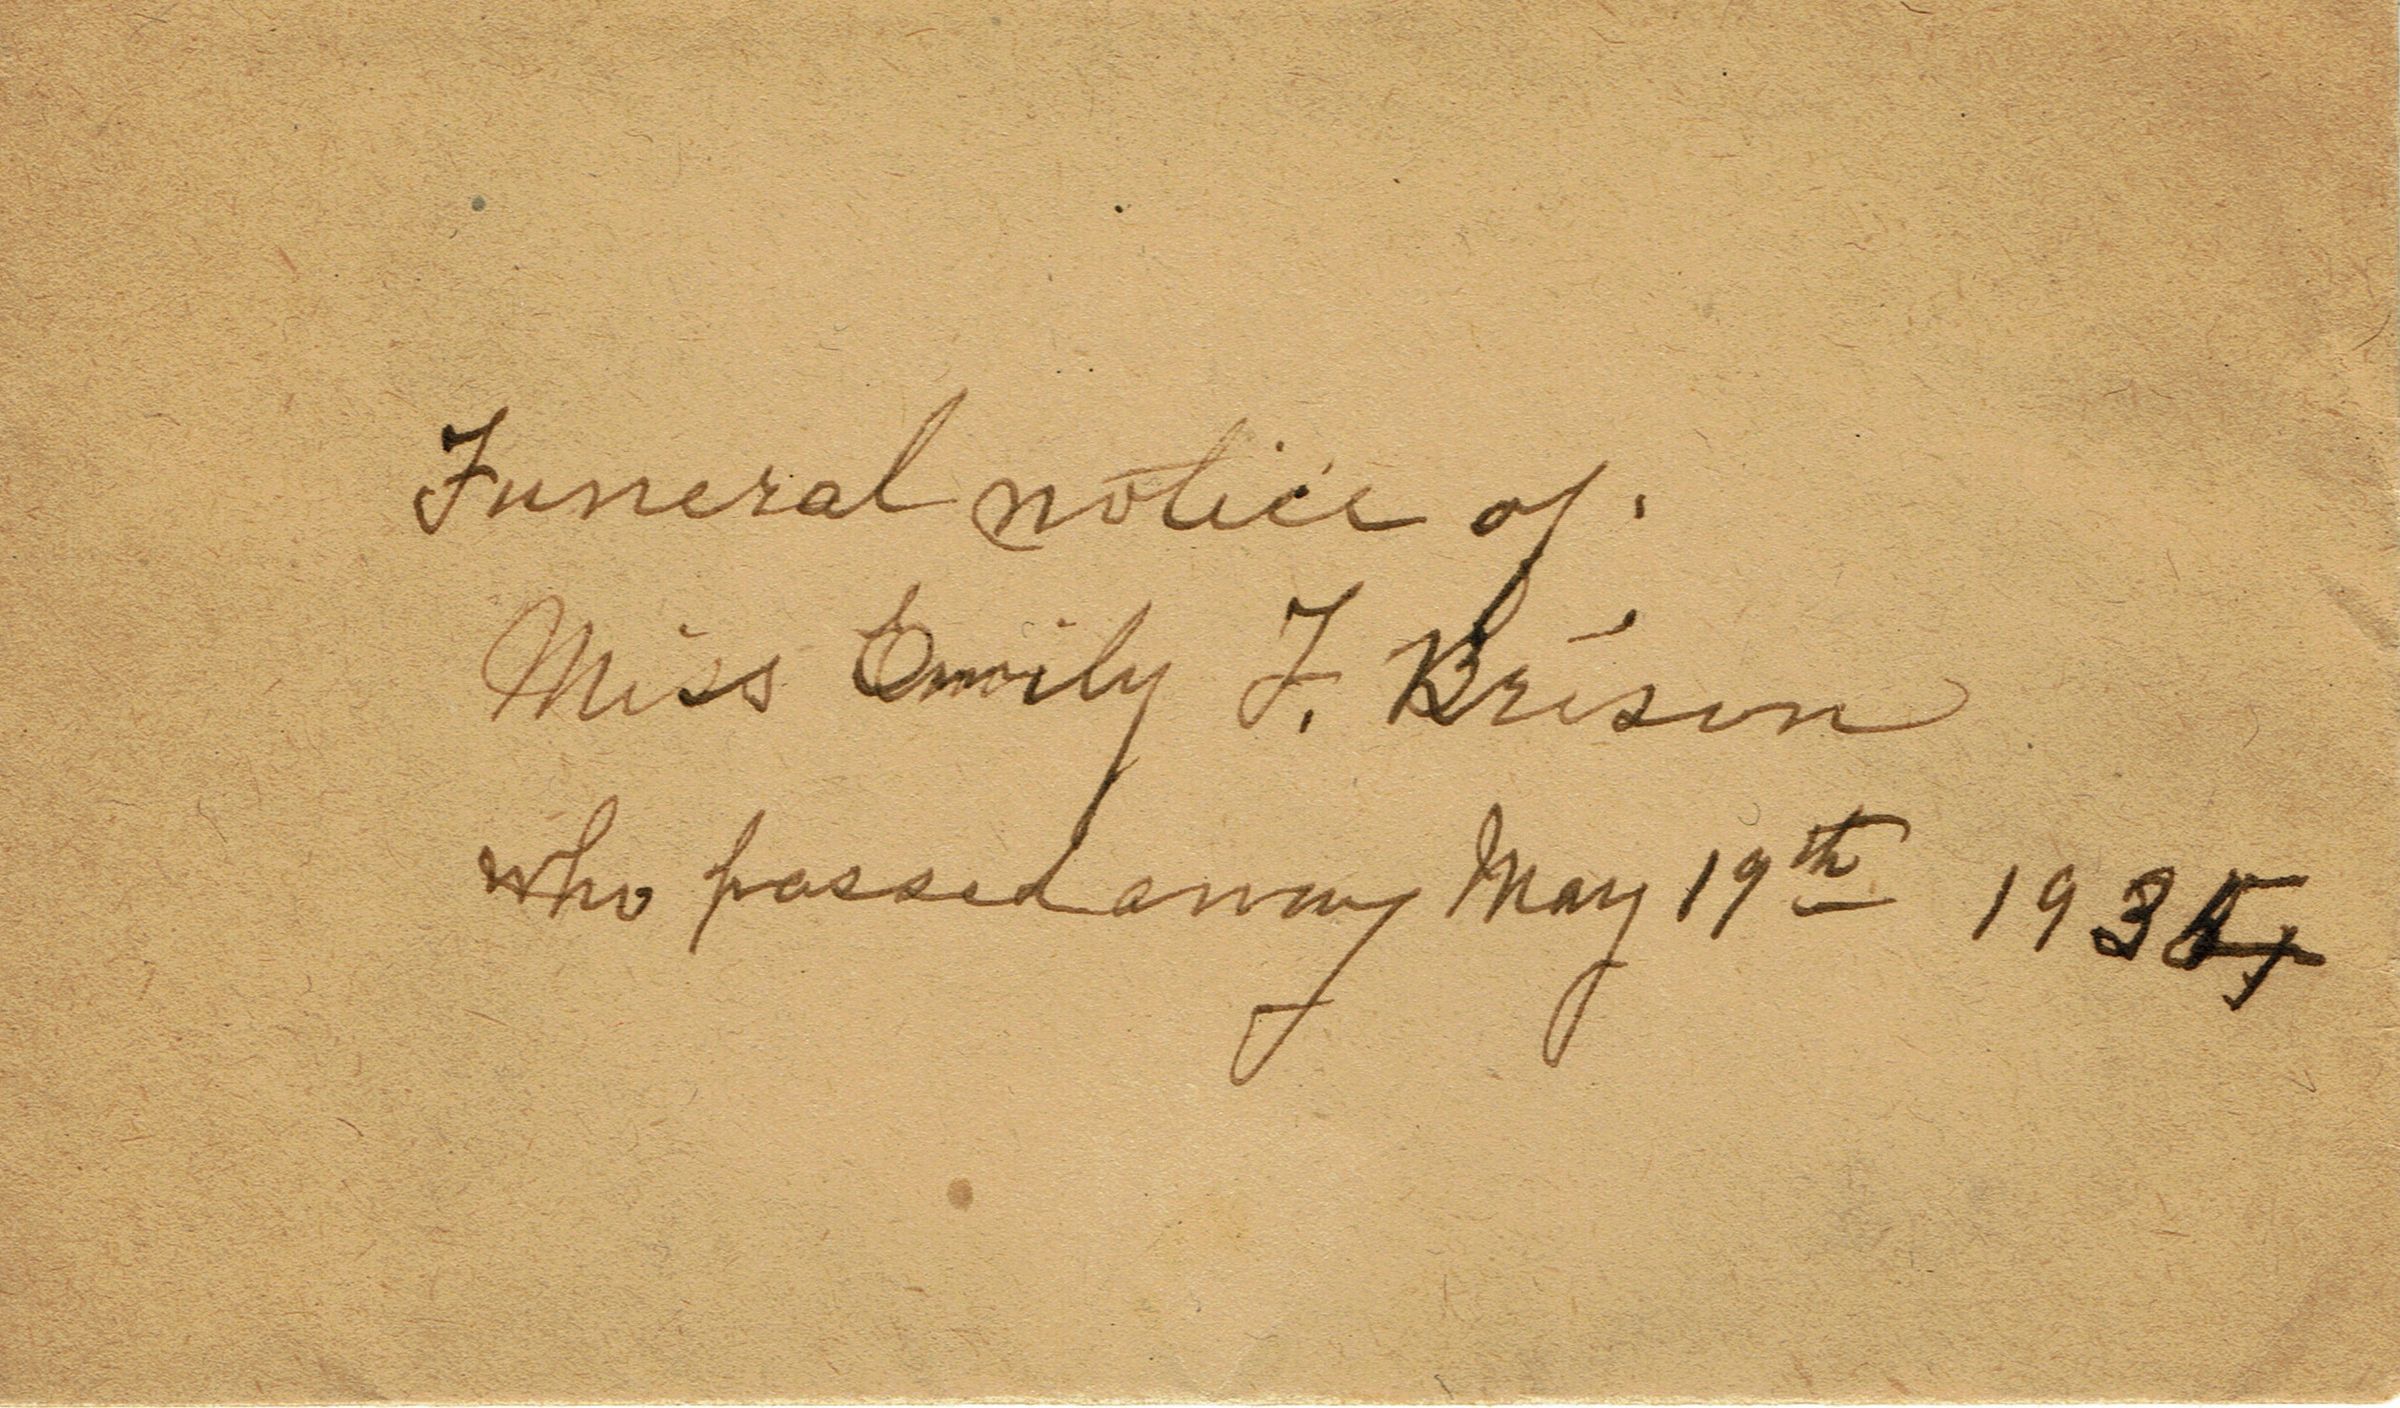 Funeral notice of.
Miss Emily F. Brison
who passed away May 19th